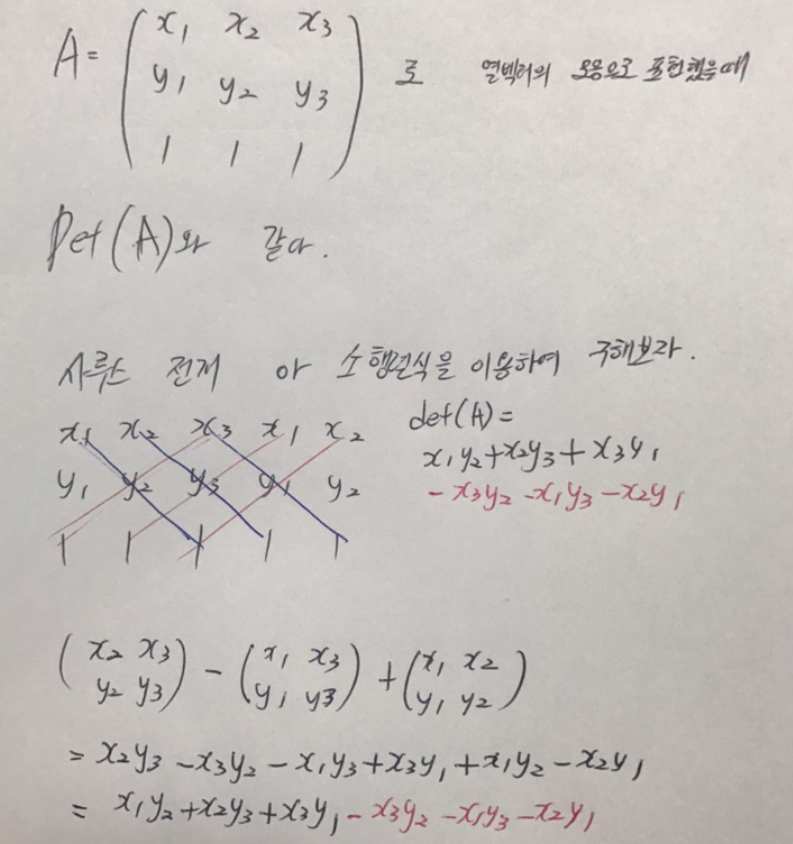 A = ( x₁ x₂ x₃
y₁ y₂ y₃ 로 열벡터의 모음으로 표현했을때
1 1 1 )
Det(A)와 같다.
사루스 전개 or 소행렬식을 이용하여 구해보라.
x₁ x₂ x₃ x₁ x₂
y₁ y₂ y₃ y₁ y₂
1 1 1 1 1
det(A) =
x₁y₂+x₂y₃+x₃y₁
-x₃y₂-x₁y₃-x₂y₁
(x₂ x₃) - (x₁ x₃) + (x₁ x₂)
(y₂ y₃) (y₁ y₃) (y₁ y₂)
= x₂y₃-x₃y₂-x₁y₃+x₃y₁+x₁y₂-x₂y₁
= x₁y₂+x₂y₃+x₃y₁-x₃y₂-x₁y₃-x₂y₁